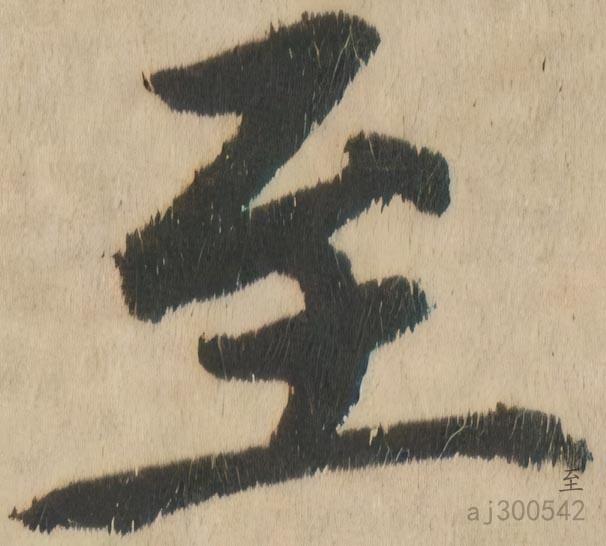 至
至
aj300542